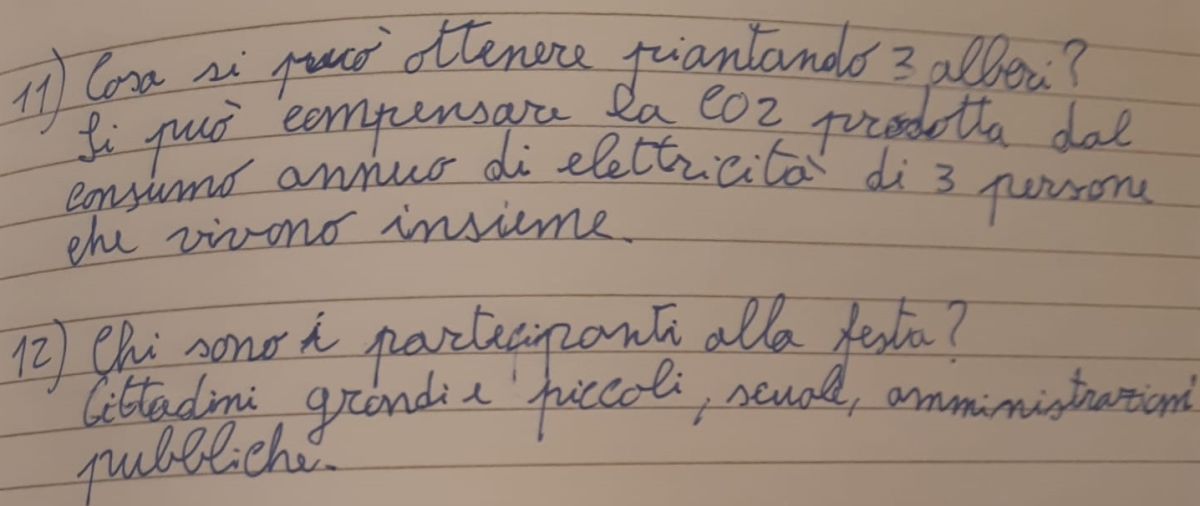 11) Cosa si può ottenere piantando 3 alberi?
Si può compensare la CO2 prodotta dal
consumo annuo di elettricità di 3 persone
che vivono insieme.
12) Chi sono i partecipanti alla festa?
Cittadini grandi e piccoli, scuole, amministrazioni
pubbliche.